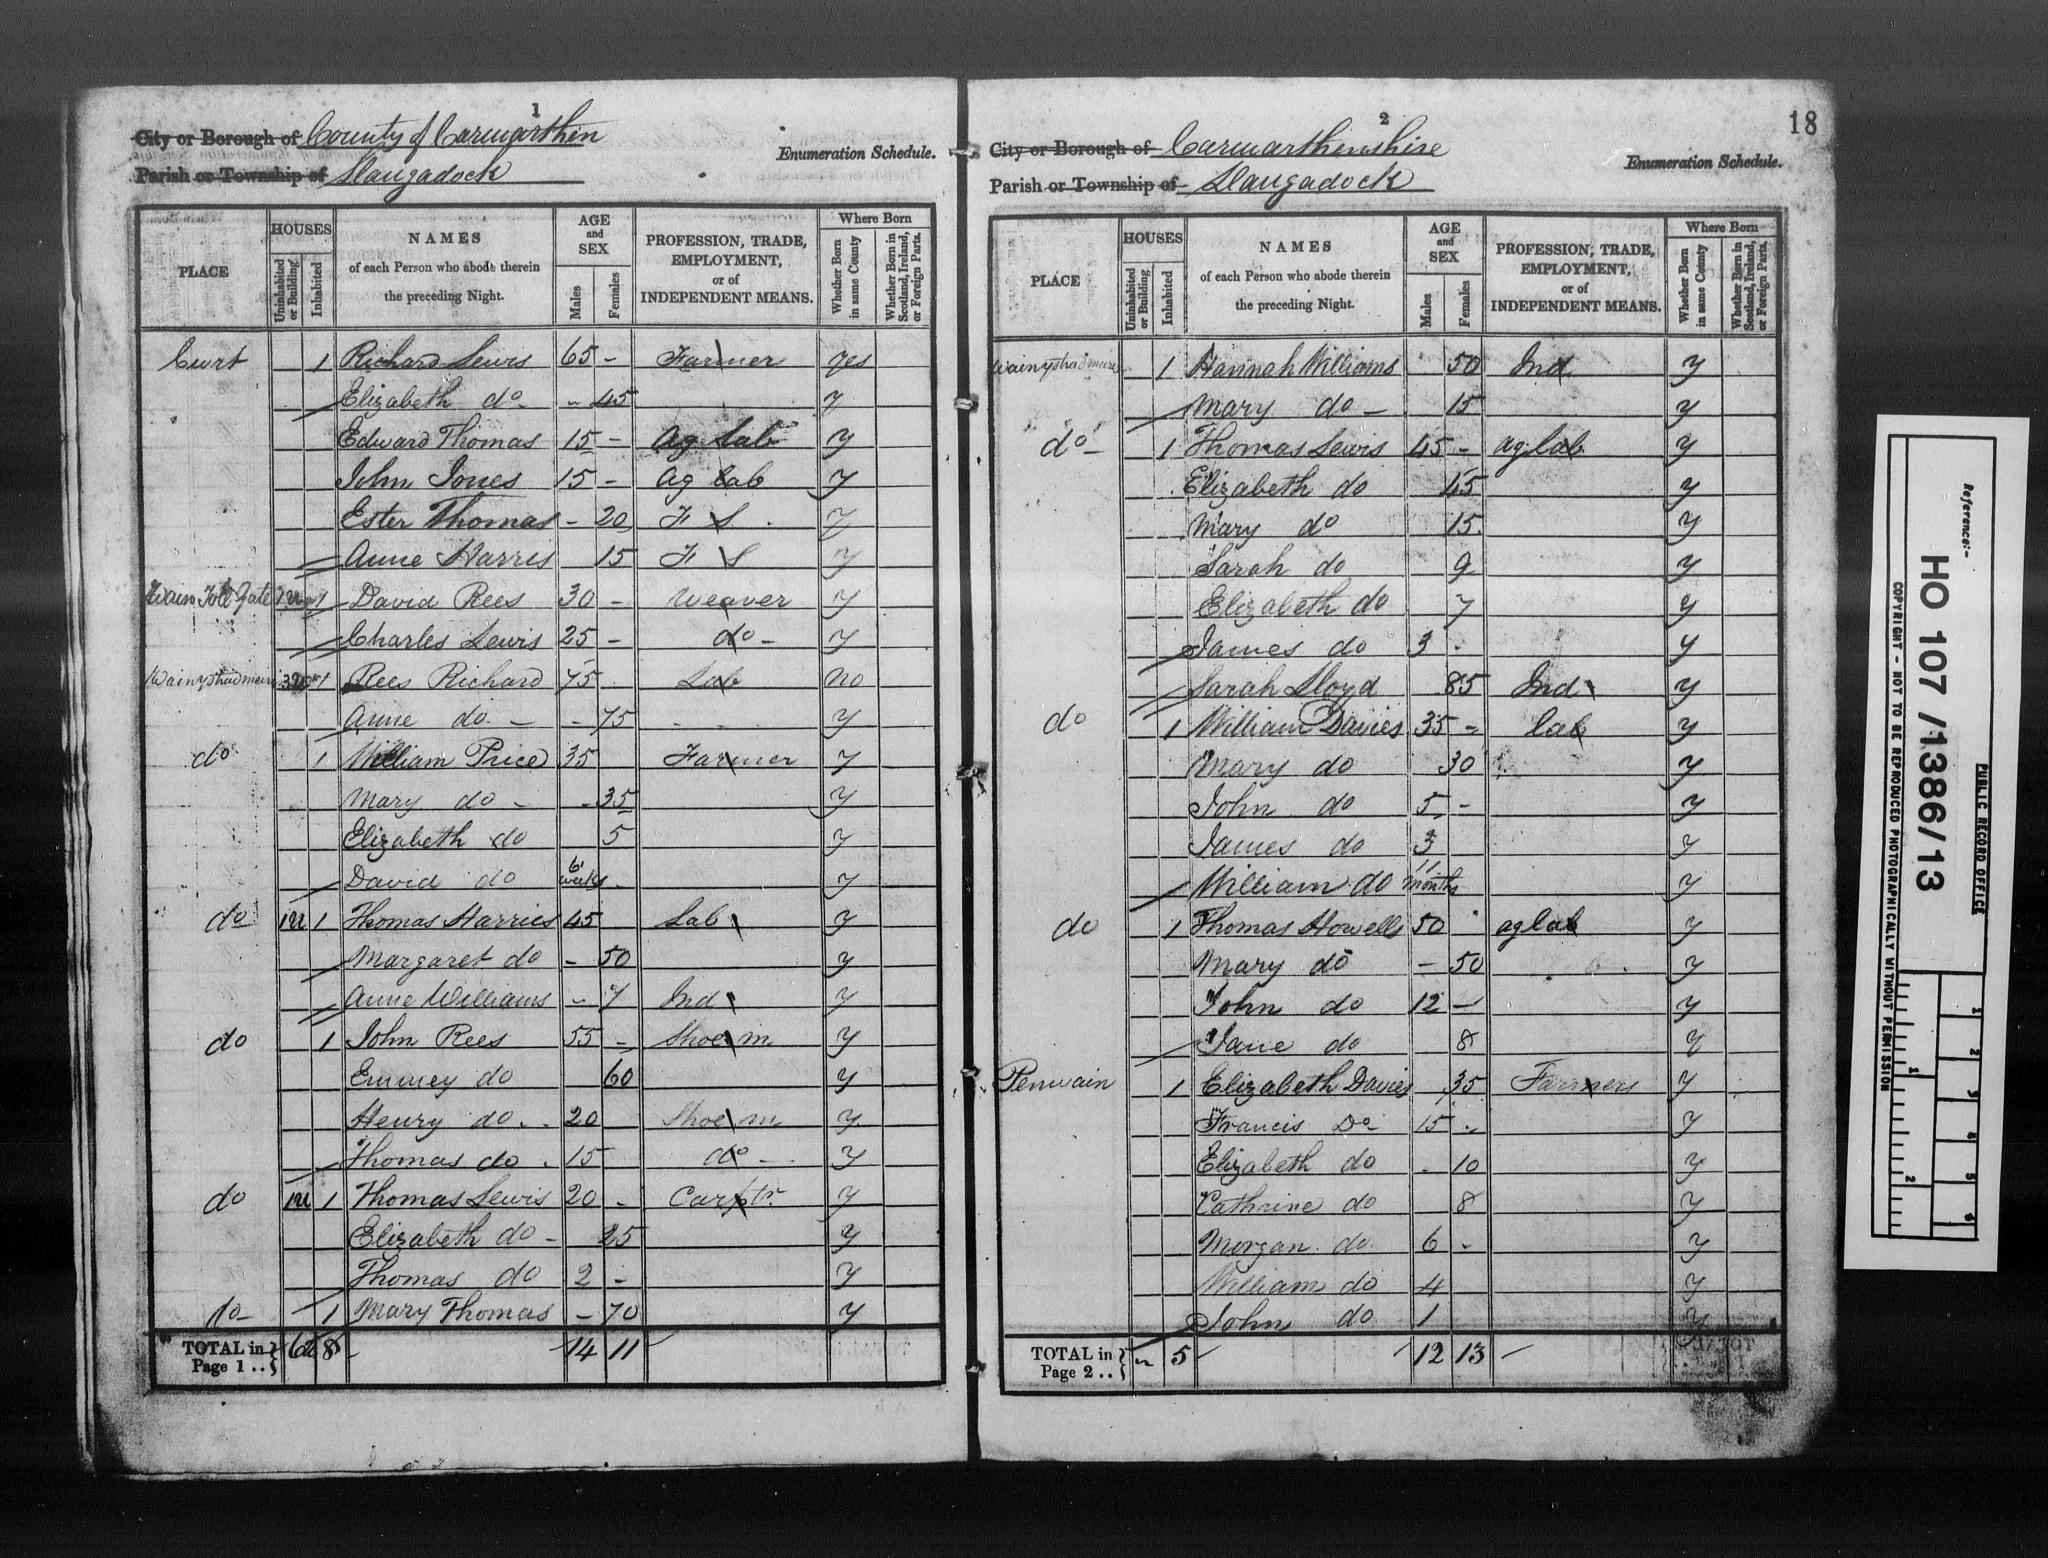 1
City or Borough of County of Carmarthen
Enumeration Schedule.
Parish or Township of Llangadock
PLACE
HOUSES
Uninhabited or Building
Inhabited
NAMES of each Person who abode therein the preceding Night.
AGE and SEX
Males
Females
PROFESSION, TRADE, EMPLOYMENT, or of INDEPENDENT MEANS.
Where Born
Whether Born in same County
Whether Born in Scotland, Ireland, or Foreign Parts.
Cwrt 1 Richard Lewis 65 - Farmer yes
Elizabeth do - - 45 y
Edward Thomas 15 - Ag Lab y
John Jones 15 - Ag Lab y
Ester Thomas - 20 F S y
Anne Harris 15 F S y
Wain Toll Gate 1u 1 David Rees 30 - Weaver y
Charles Lewis 25 - do - y
Wainystradmeiric 3u 1 Rees Richard 75 Lab no
Anne do - - 75 y
do 1 William Price 35 Farmer y
Mary do - - 35 y
Elizabeth do 5 y
David do 6 weeks y
do 1u 1 Thomas Harries 45 Lab y
Margaret do - 50 y
Anne Williams - 7 Ind y
do 1 John Rees 55 - Shoe m y
Emmey do 60 y
Henry do 20 Shoe m y
Thomas do 15 do - y
do 1u 1 Thomas Lewis 20 - Carptr y
Elizabeth do - 25 y
Thomas do 2 - y
do 1 Mary Thomas - 70 y
TOTAL in Page 1 .. 6u 8 14 11
2
18
City or Borough of Carmarthenshire
Enumeration Schedule.
Parish or Township of Llangadock
PLACE
HOUSES
Uninhabited or Building
Inhabited
NAMES of each Person who abode therein the preceding Night.
AGE and SEX
Males
Females
PROFESSION, TRADE, EMPLOYMENT, or of INDEPENDENT MEANS.
Where Born
Whether Born in same County
Whether Born in Scotland, Ireland, or Foreign Parts.
1 Hannah Williams 50 Ind y
Mary do - 15 y
do - 1 Thomas Lewis 45 - ag lab y
Elizabeth do 45 y
Mary do 15 y
Sarah do 9 y
Elizabeth do 7 y
James do 3 y
Sarah Lloyd 85 Ind y
do 1 William Davies 35 - lab y
Mary do 30 y
John do 5 - y
James do 3 y
William do 11 months y
do 1 Thomas Howells 50 ag lab y
Mary do - 50 y
John do 12 - y
Jane do 8 y
Penwain 1 Elizabeth Davies 35 Farmers y
Francis Do 15 - y
Elizabeth do - 10 y
Cathrine do 8 y
Morgan do 6 - y
William do 4 y
John do 1 y
TOTAL in Page 2 .. 5 12 13
PUBLIC RECORD OFFICE
Reference:-
HO 107 / 1386/13
COPYRIGHT - NOT TO BE REPRODUCED PHOTOGRAPHICALLY WITHOUT PERMISSION
1 2
1 2 3 4 5 6